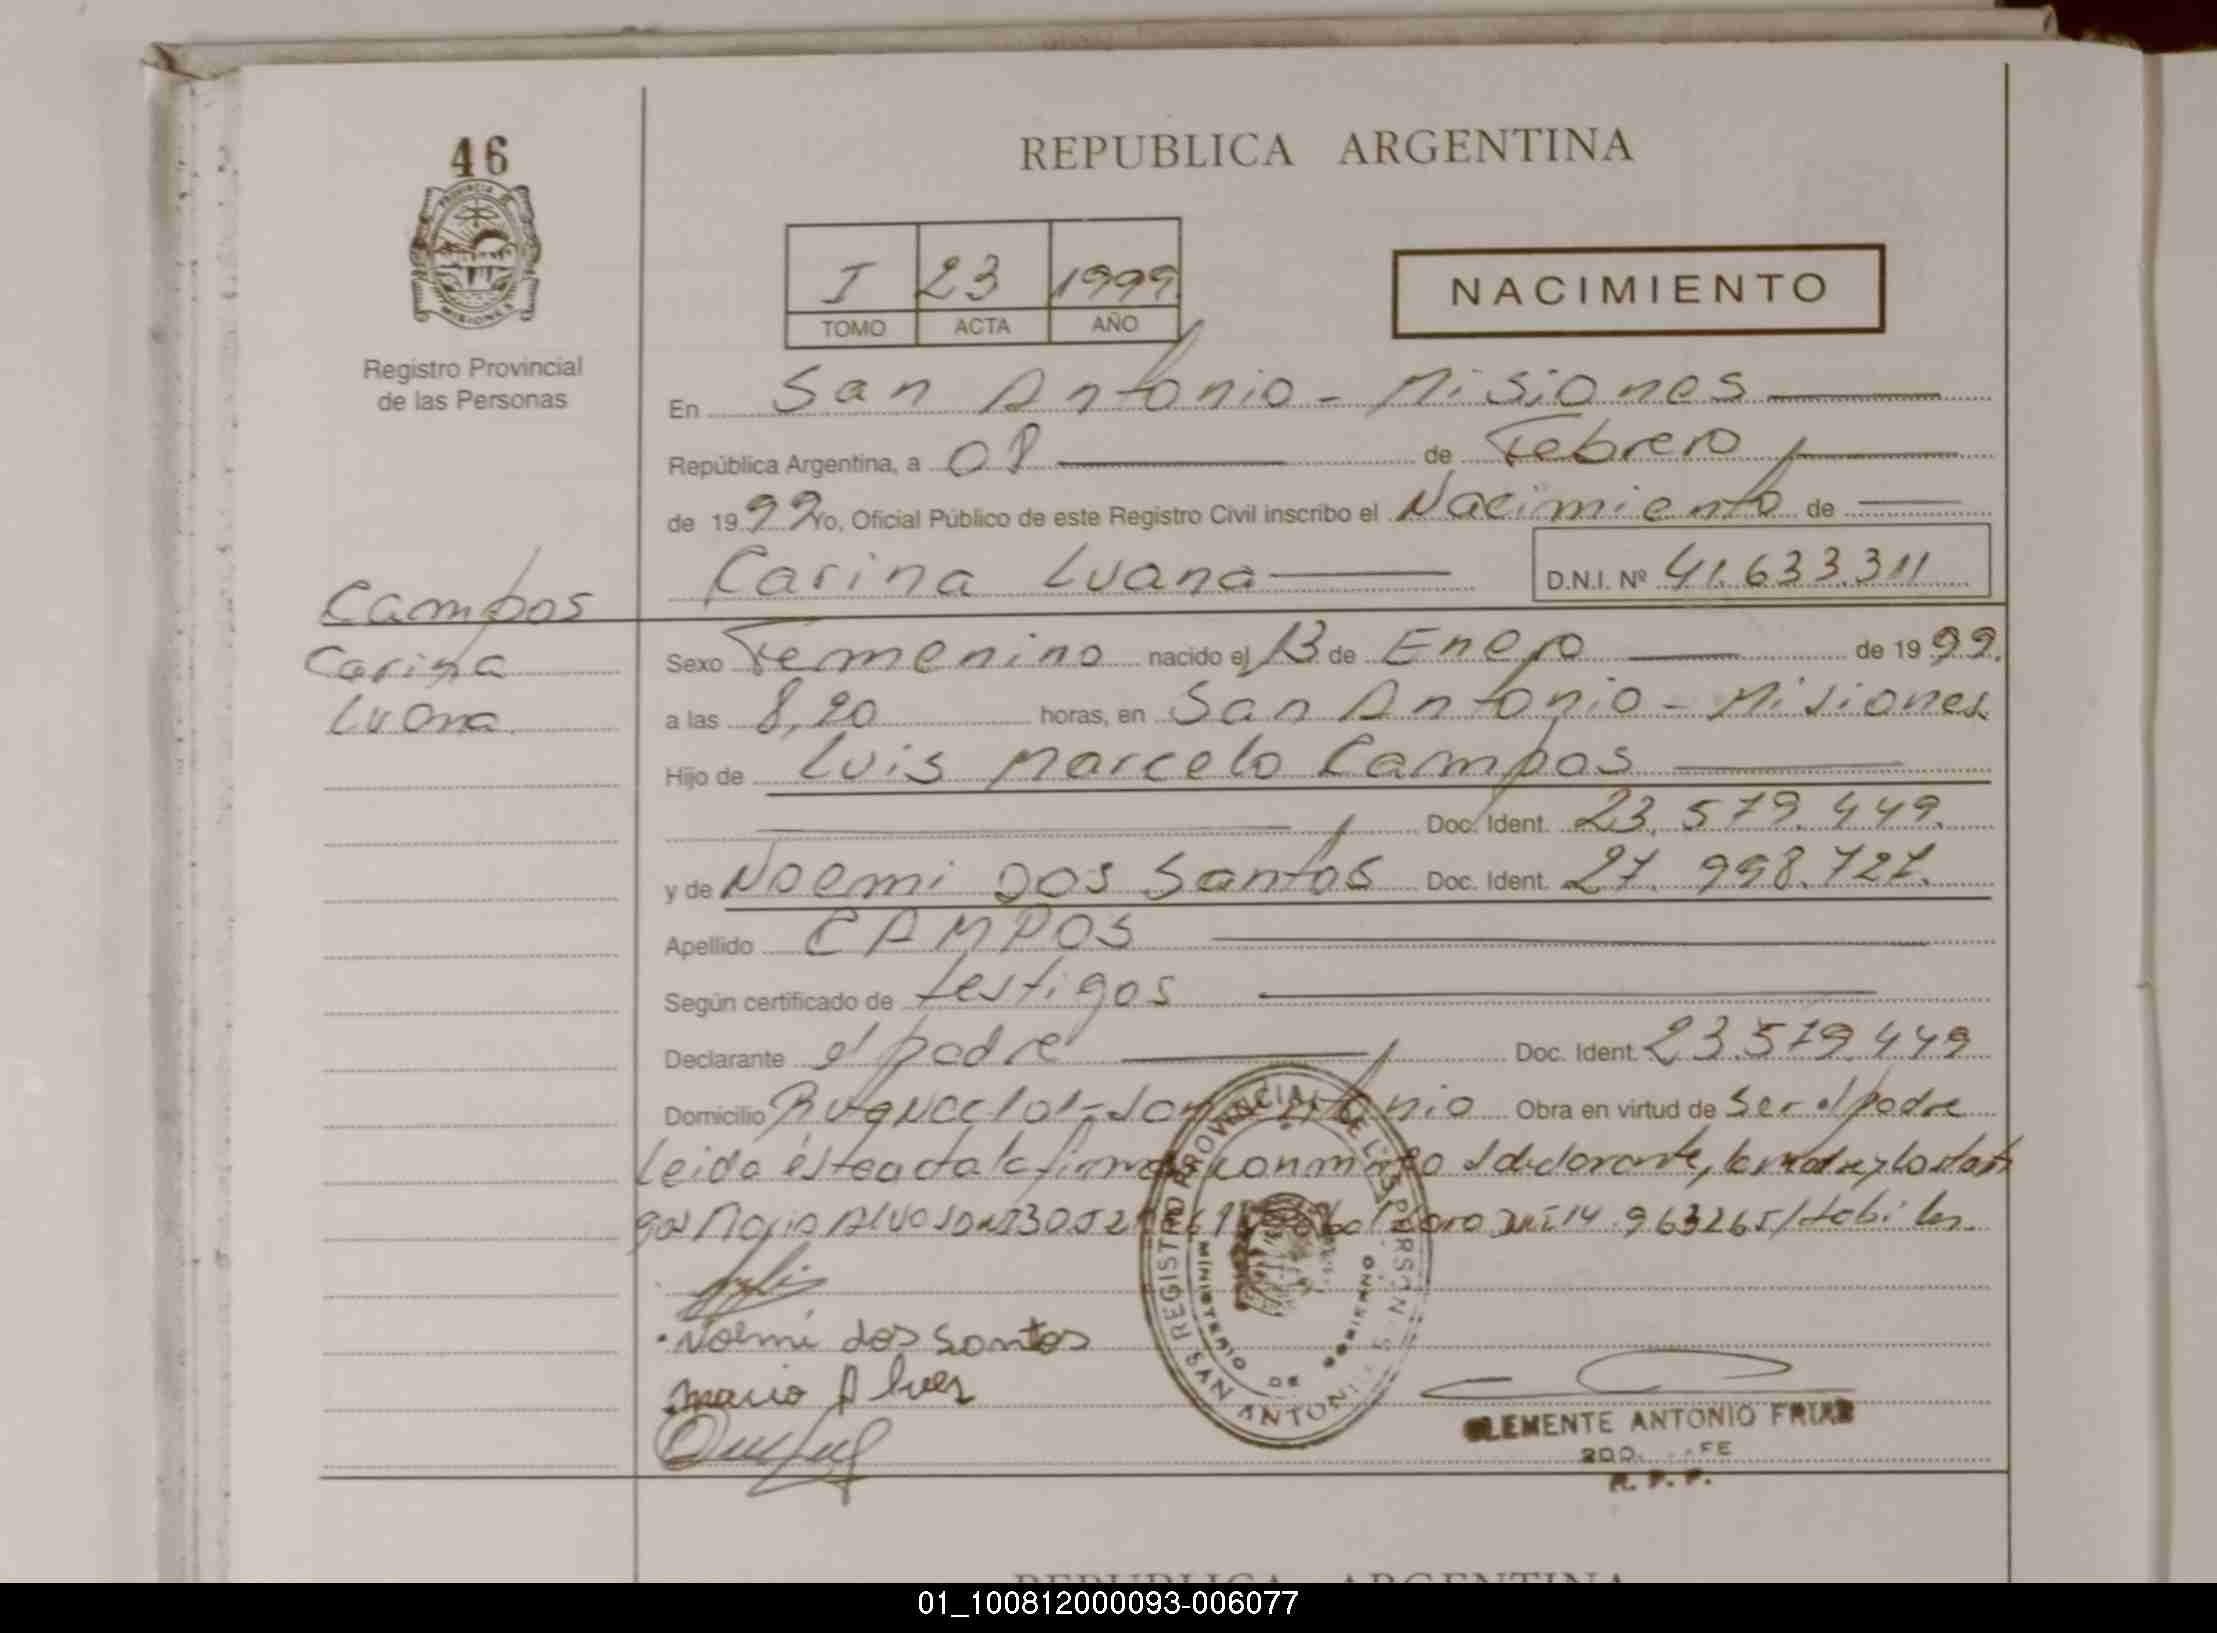 46
PROVINCIA DE
MISIONES
Registro Provincial
de las Personas
Campos
Carina
Luana
REPUBLICA ARGENTINA
I 23 1999
TOMO ACTA AÑO
NACIMIENTO
En San Antonio - Misiones
República Argentina, a 08 de Febrero
de 1999 Yo, Oficial Público de este Registro Civil inscribo el Nacimiento de
Carina Luana D.N.I. Nº 41.633.311
Sexo Femenino nacido el 13 de Enero de 1999.
a las 8,20 horas, en San Antonio - Misiones
Hijo de Luis Marcelo Campos
Doc. Ident. 23.579.449.
y de Noemi Dos Santos Doc. Ident. 27.998.727.
Apellido CAMPOS
Según certificado de testigos
Declarante el padre Doc. Ident. 23.579.449
Domicilio San Antonio Obra en virtud de Ser el padre
Leida ésta acta la firman conmigo el declarante, la madre y los testi
gos Mario Alves 14.963265/
Noemi dos Santos
Mario Alves
REGISTRO PROVINCIAL DE LAS PERSONAS
MINISTERIO DE GOBIERNO
SAN ANTONIO
CLEMENTE ANTONIO FRIAS
R. P. P.
REPUBLICA ARGENTINA
01_100812000093-006077